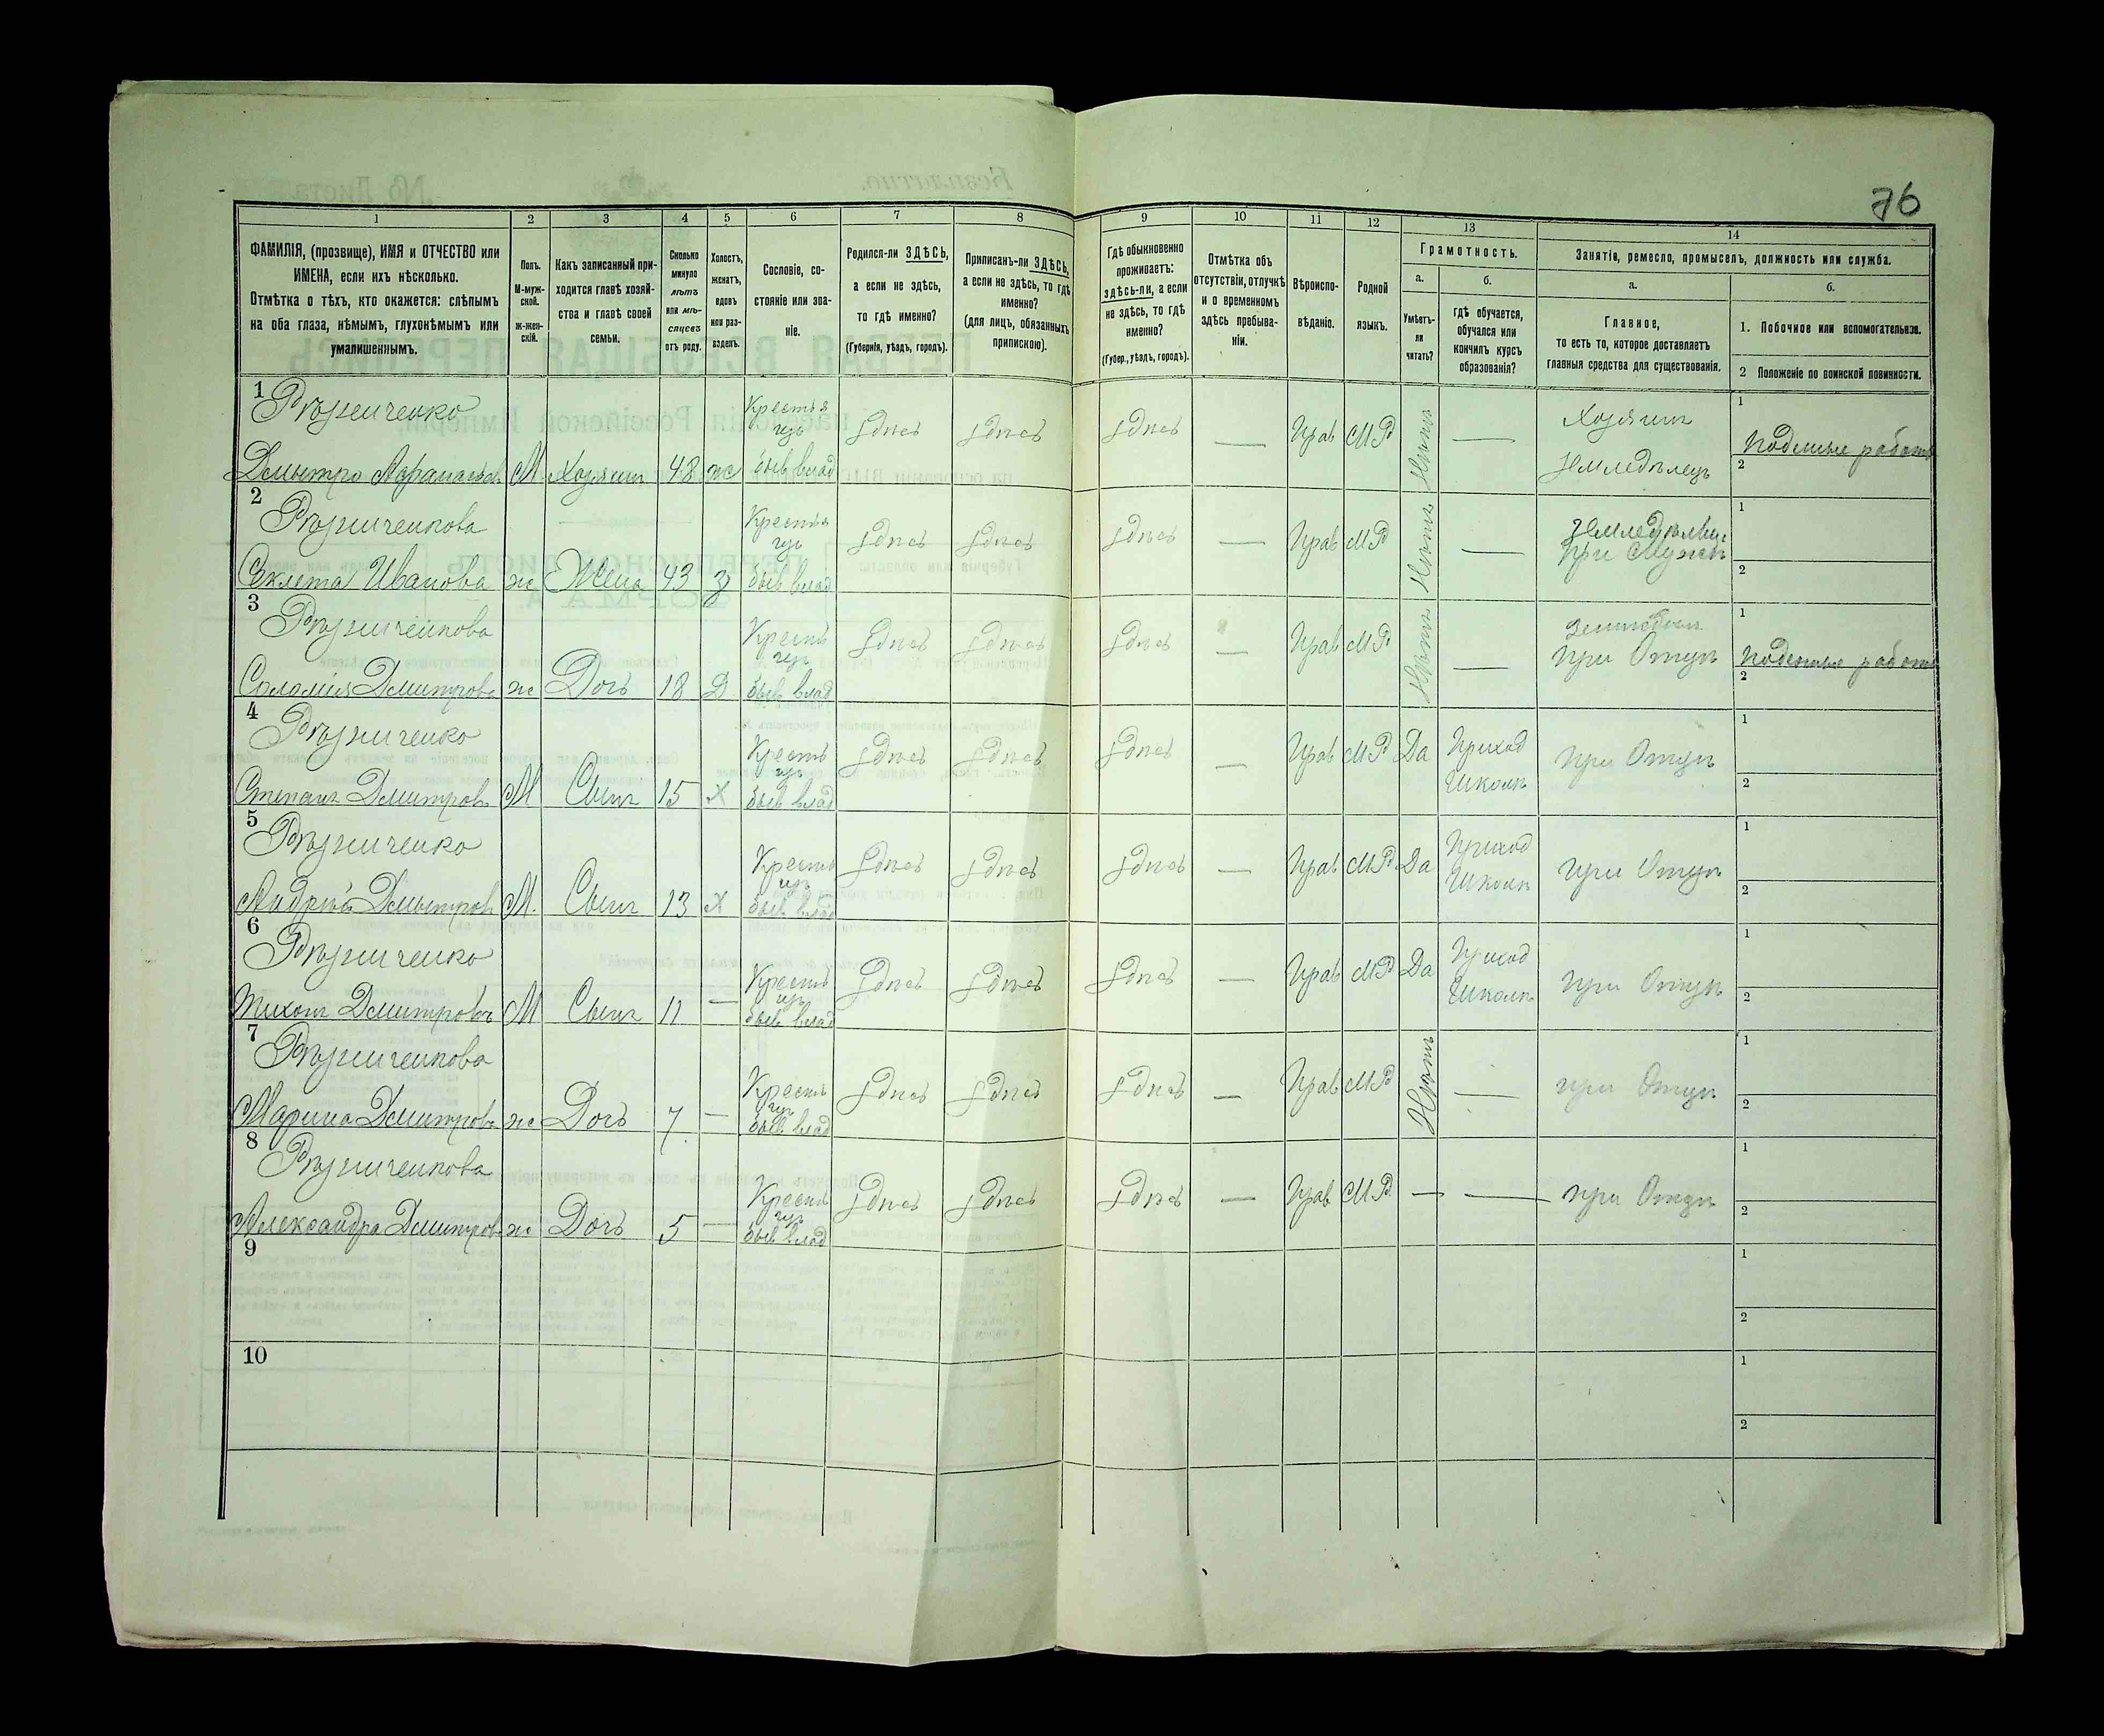 76
1
2
3
4
5
6
7
8
9
10
11
12
13
14
ФАМИЛІЯ, (прозвище), ИМЯ и ОТЧЕСТВО или
ИМЕНА, если ихъ нѣсколько.
Отмѣтка о тѣхъ, кто окажется: слѣпымъ
на оба глаза, нѣмымъ, глухонѣмымъ или
умалишеннымъ.
Полъ.
М-муж-
ской.
ж-жен-
скій.
Какъ записанный при-
ходится главѣ хозяй-
ства и главѣ своей
семьи.
Сколько
минуло
лѣтъ
или мѣ-
сяцевъ
отъ роду.
Холостъ,
женатъ,
вдовъ
или раз-
веденъ.
Сословіе, со-
стояніе или зва-
ніе.
Родился-ли ЗДѢСЬ,
а если не здѣсь,
то гдѣ именно?
(Губернія, уѣздъ, городъ).
Приписанъ-ли ЗДѢСЬ,
а если не здѣсь, то гдѣ
именно?
(для лицъ, обязанныхъ
припискою).
Гдѣ обыкновенно
проживаетъ:
здѣсь-ли, а если
не здѣсь, то гдѣ
именно?
(Губер., уѣздъ, городъ).
Отмѣтка объ
отсутствіи, отлучкѣ
и о временномъ
здѣсь пребыва-
ніи.
Вѣроиспо-
вѣданіе.
Родной
языкъ.
Грамотность.
а.
Умѣетъ-
ли
читать?
б.
гдѣ обучается,
обучался или
кончилъ курсъ
образованія?
Занятіе, ремесло, промыселъ, должность или служба.
а.
Главное,
то есть то, которое доставляетъ
главныя средства для существованія.
б.
1. Побочное или вспомогательное.
2 Положеніе по воинской повинности.
1 Рѣзниченко
Дмытро Афанасьев М Хозяин 48 ж Крестья изъ быв влад здѣсь здѣсь здѣсь — Прав МР Нѣтъ — Хозяин Земледѣлецъ 1 Поденные работы 2
2 Рѣзниченкова
Феклета Иванова ж Жена 43 З Крестья изъ быв влад здѣсь здѣсь здѣсь — Прав МР Нѣтъ — При Мужѣ 1 2
3 Рѣзниченкова
Соломія Дмитров ж Дочь 18 Д Кресть изъ быв влад здѣсь здѣсь здѣсь — Прав МР Нѣтъ — при Отцѣ 1 Поденные работы 2
4 Рѣзниченко
Степанъ Дмитров М Сынъ 15 Х Кресть изъ быв влад здѣсь здѣсь здѣсь — Прав МР Да Приход Школѣ при Отцѣ 1 2
5 Рѣзниченко
Андрѣй Дмытров М. Сынъ 13 Х Кресть изъ быв влад здѣсь здѣсь здѣсь — Прав МР Да Приход Школѣ при Отцѣ 1 2
6 Рѣзниченко
Тихонъ Дмитровъ М Сынъ 11 — Кресть изъ быв влад здѣсь здѣсь здѣсь — Прав МР Да Приход Школѣ при Отцѣ 1 2
7 Рѣзниченкова
Марина Дмитров ж Дочь 7 — Кресть изъ быв влад здѣсь здѣсь здѣсь — Прав МР Нѣтъ — при Отцѣ 1 2
8 Рѣзниченкова
Александра Дмитров ж Дочь 5 — Кресть изъ быв влад здѣсь здѣсь здѣсь — Прав МР — — при Отцѣ 1 2
9 1 2
10 1 2